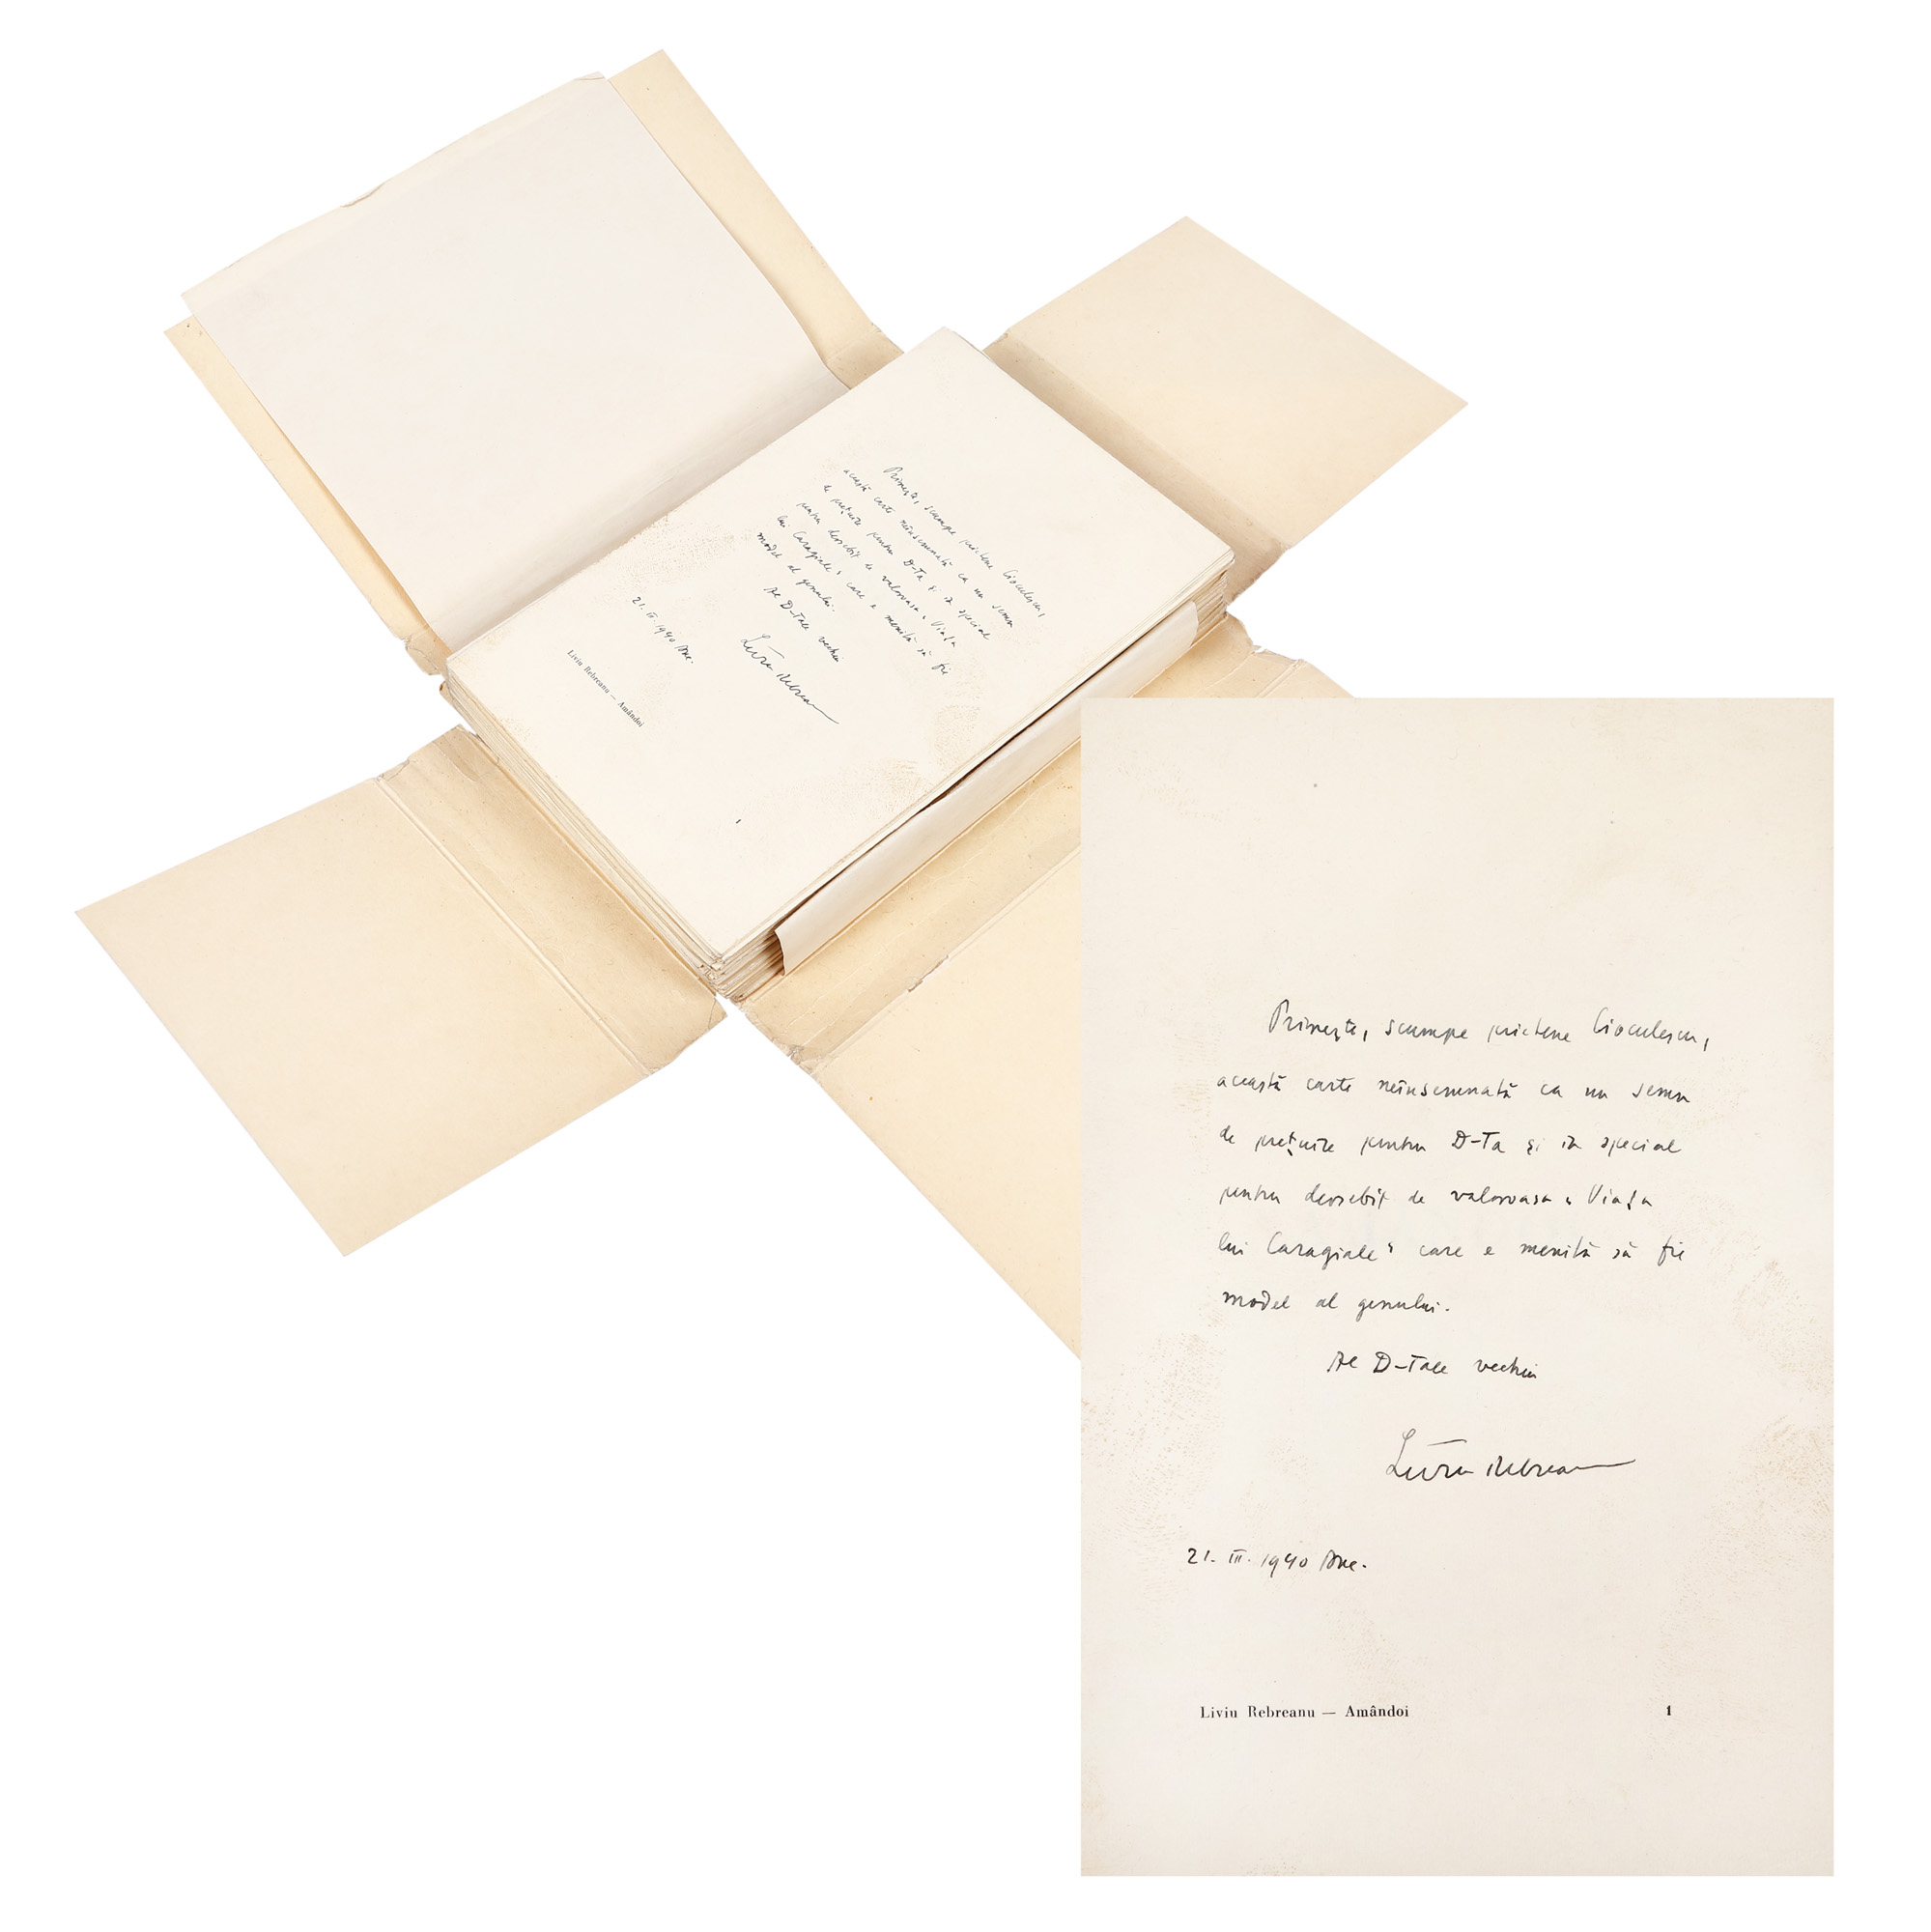 Primește, scumpe prietene Cioculescu,
această carte neînsemnată ca un semn
de prețuire pentru D-Ta și în special
pentru deosebit de valoroasa „Viața
lui Caragiale” care e menită să fie
model al genului.
Al D-Tale vechiu
Liviu Rebreanu
21. III. 1940 Buc.
Liviu Rebreanu — Amândoi
1
Primește, scumpe prietene Cioculescu,
această carte neînsemnată ca un semn
de prețuire pentru D-Ta și în special
pentru deosebit de valoroasa „Viața
lui Caragiale” care e menită să fie
model al genului.
Al D-Tale vechiu
Liviu Rebreanu
21. III. 1940 Buc.
Liviu Rebreanu — Amândoi 1